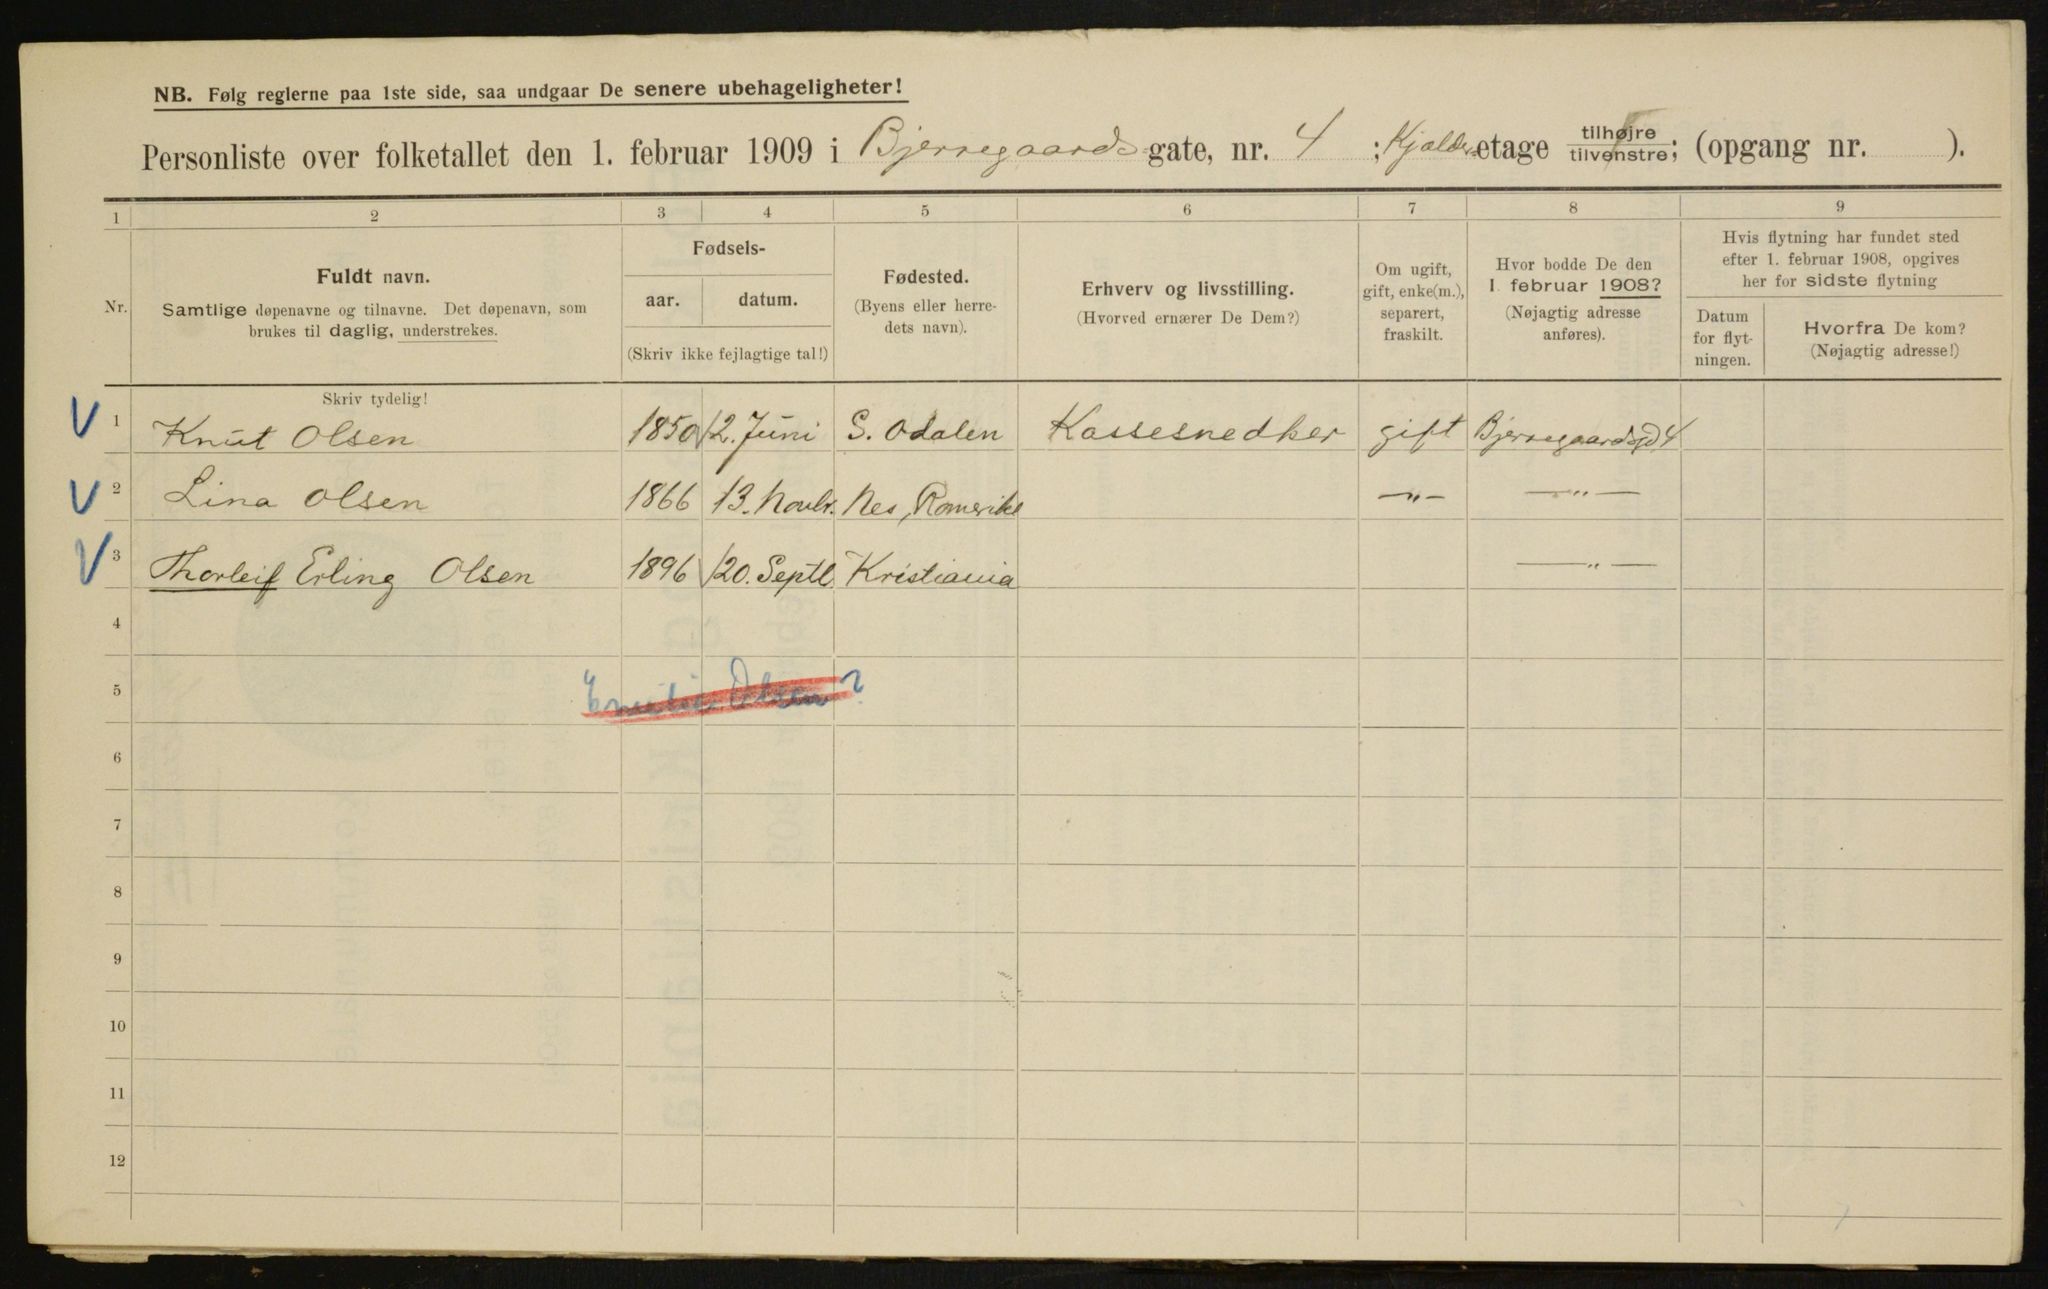 NB. Følg reglerne paa 1ste side, saa undgaar De senere ubehageligheter!
Personliste over folketallet den 1. februar 1909 i Bjerregaards gate, nr. 4 ; Kjælder etage tilhøjre tilvenstre; (opgang nr. ).
1 2 3 4 5 6 7 8 9
Nr.
Fuldt navn.
Samtlige døpenavne og tilnavne. Det døpenavn, som
brukes til daglig, understrekes.
Fødsels-
aar. datum.
(Skriv ikke fejlagtige tal!)
Fødested.
(Byens eller herre-
dets navn).
Erhverv og livsstilling.
(Hvorved ernærer De Dem?)
Om ugift,
gift, enke(m.),
separert,
fraskilt.
Hvor bodde De den
1. februar 1908?
(Nøjagtig adresse
anføres).
Hvis flytning har fundet sted
efter 1. februar 1908, opgives
her for sidste flytning
Datum
for flyt-
ningen.
Hvorfra De kom?
(Nøjagtig adresse!)
Skriv tydelig!
V 1 Knut Olsen 1850 12. Juni S. Odalen Kassesnedker gift Bjerregaardsgd 4
V 2 Lina Olsen 1866 13. Novbr. Nes, Romerike —„— —„—
V 3 Thorleif Erling Olsen 1896 20. Septb. Kristiania —„—
4
5 Emilie Olsen?
6
7
8
9
10
11
12